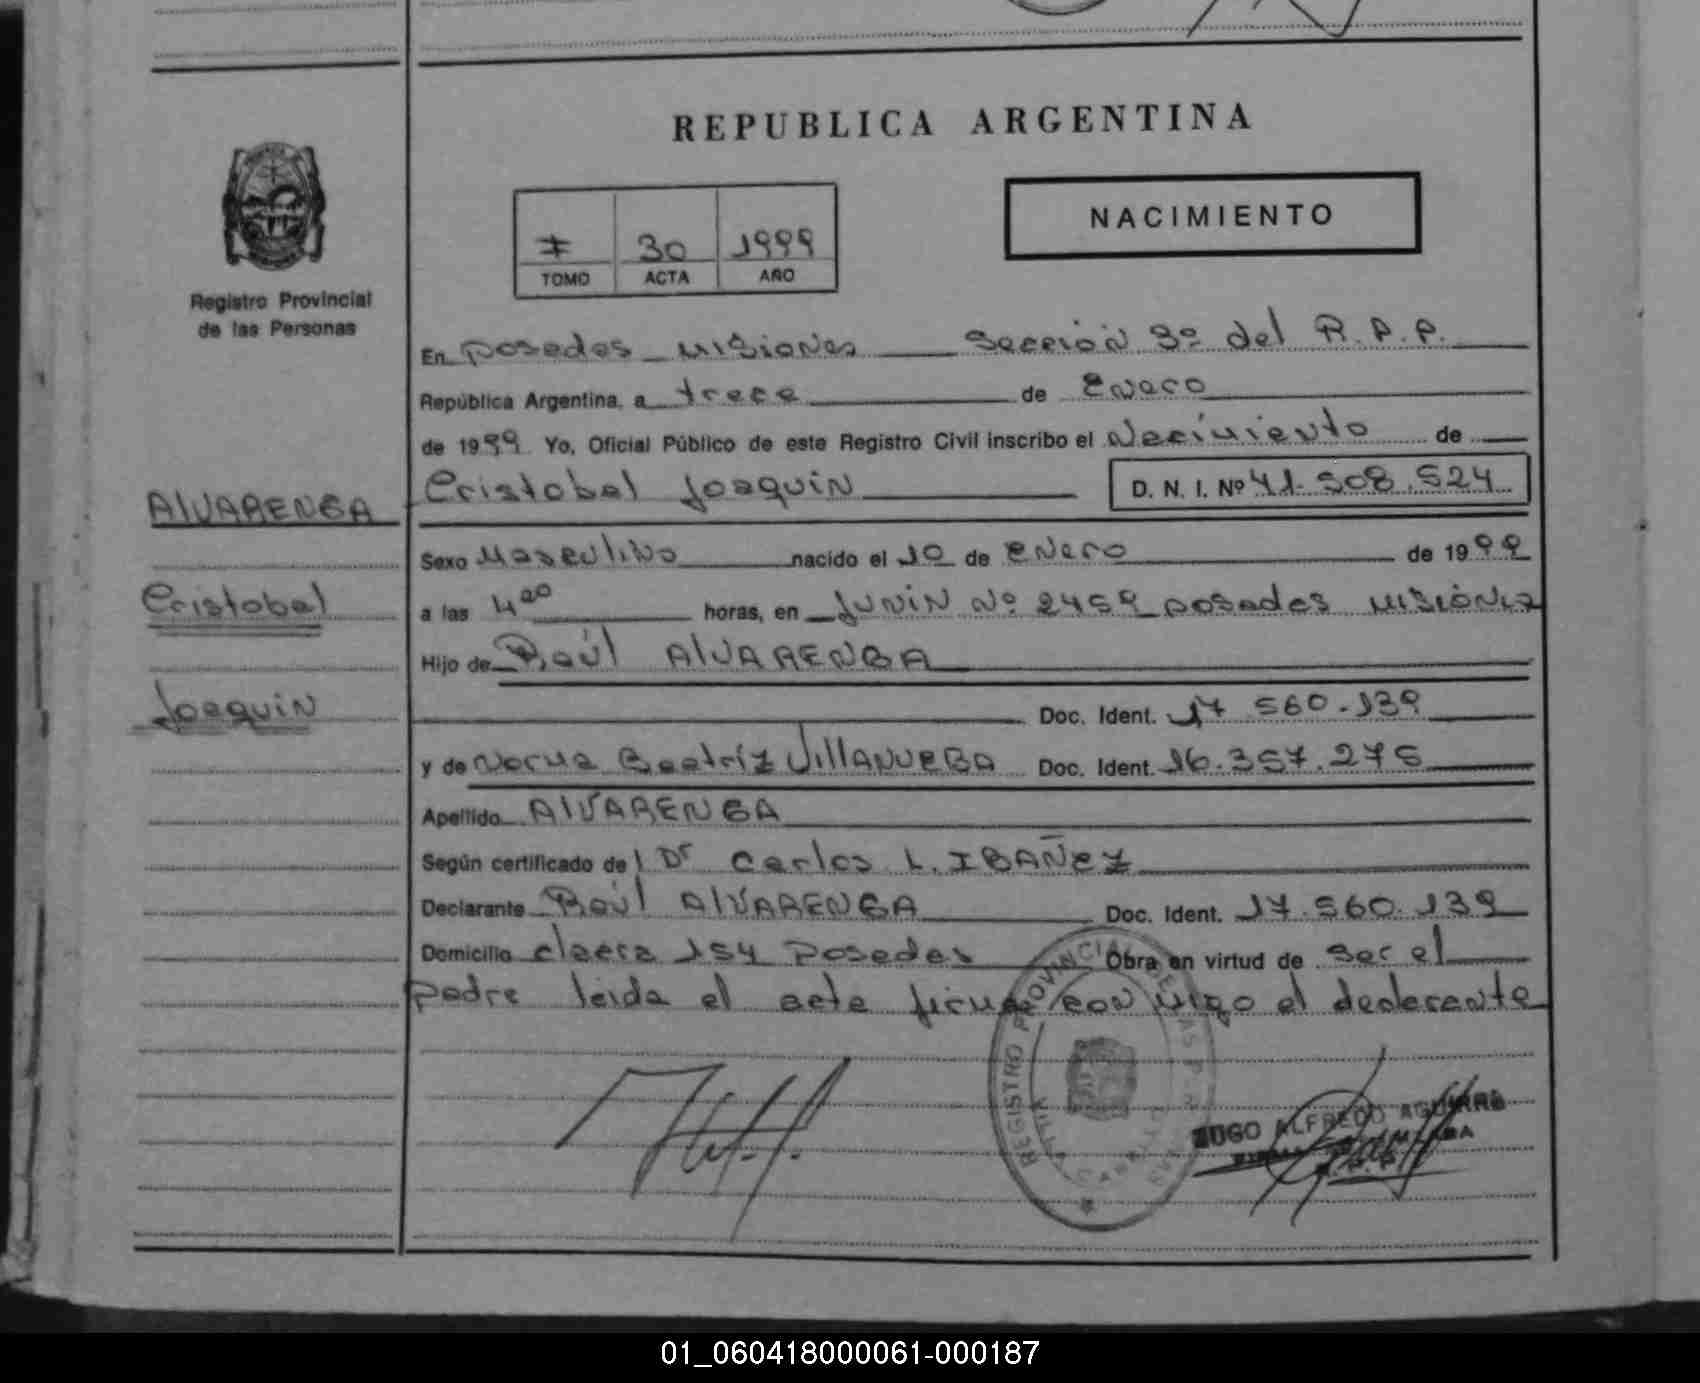 REPUBLICA ARGENTINA
NACIMIENTO
7 30 1999
TOMO ACTA AÑO
Registro Provincial
de las Personas
En Posadas Misiones Sección 3º del R.P.P.
República Argentina, a trece de Enero
de 1999 Yo, Oficial Público de este Registro Civil inscribo el Nacimiento de
Cristobal Joaquin D. N. I. Nº 41.508.524
ALVARENGA
Cristobal
Joaquin
Sexo Masculino nacido el 10 de Enero de 1999
a las 4 horas, en Junin Nº 2459 Posadas Misiones
Hijo de Raúl ALVARENGA
Doc. Ident. 17.560.139
y de Norma Beatríz VillANUEBA Doc. Ident. 16.357.275
Apellido ALVARENGA
Según certificado del Dr Carlos L. IBAÑEZ
Declarante Raúl ALVARENGA Doc. Ident. 17.560.139
Domicilio 154 Posadas Obra en virtud de ser el
padre leida el acta firma con migo el declarante
REGISTRO PROVINCIAL DE LAS
HUGO ALFREDO AGUIRRE
01_060418000061-000187